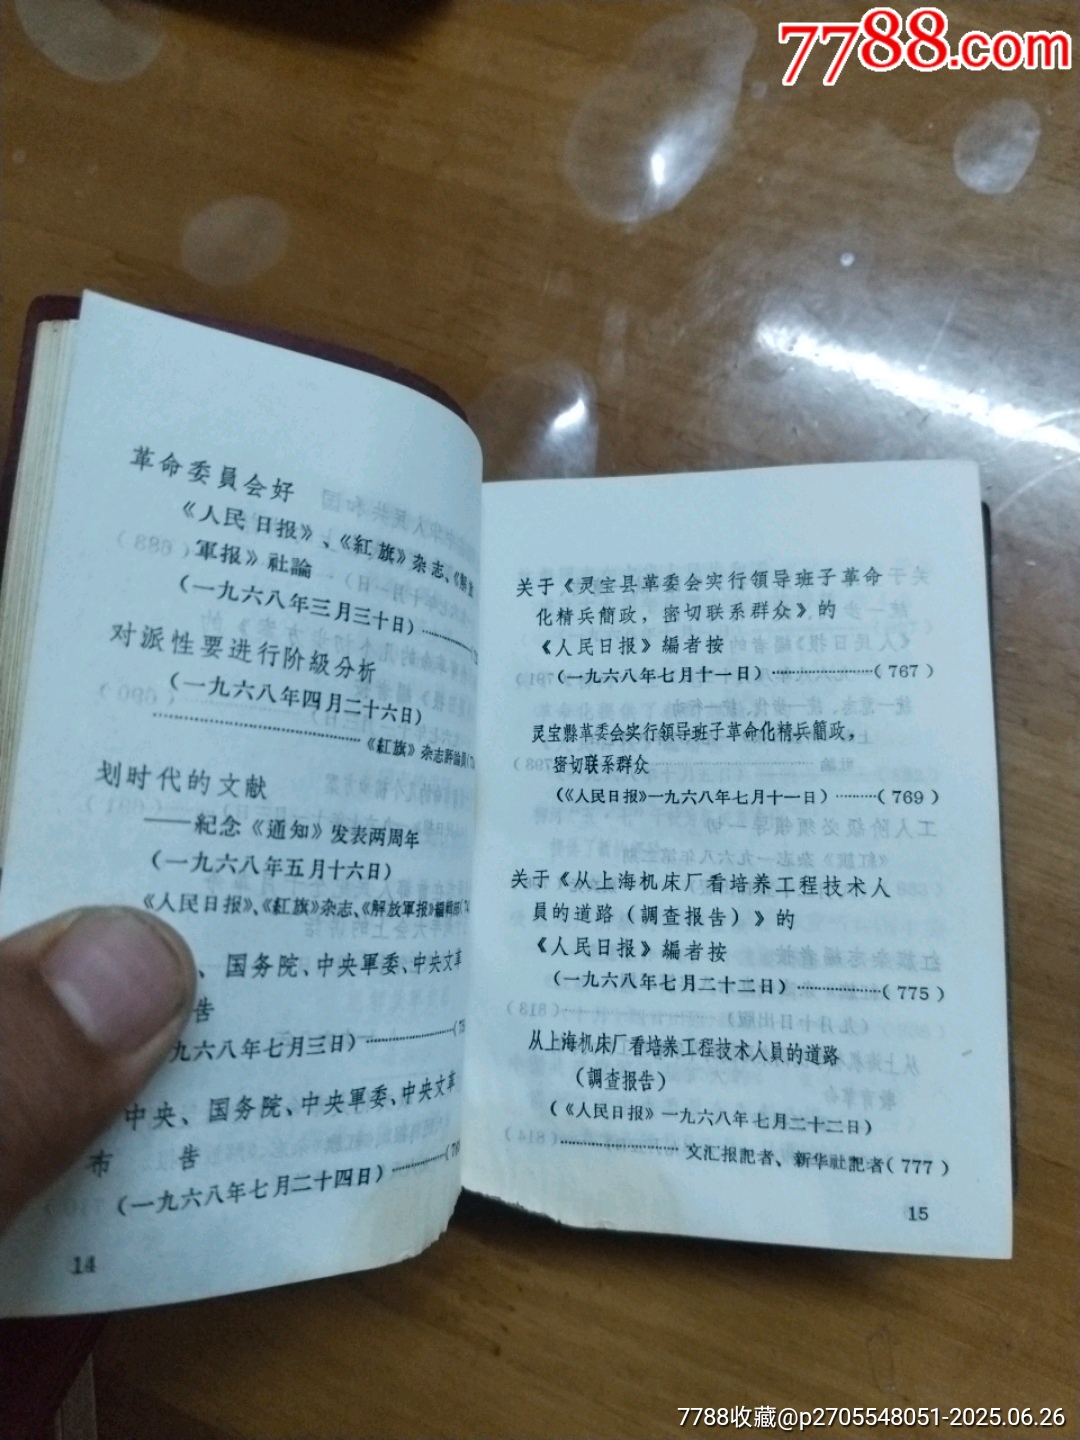 7788.com
革命委員会好
《人民日报》、《紅旗》杂志、《解放
軍报》社論
(一九六八年三月三十日)
对派性要进行阶級分析
(一九六八年四月二十六日)
《紅旗》杂志評論員
划时代的文献
——紀念《通知》发表两周年
(一九六八年五月十六日)
《人民日报》、《紅旗》杂志、《解放軍报》編輯部
、国务院、中央軍委、中央文革
告
九六八年七月三日)
中央、国务院、中央軍委、中央文革
布 告
(一九六八年七月二十四日)
14
关于《灵宝县革委会实行領导班子革命
化精兵簡政,密切联系群众》的
《人民日报》編者按
(一九六八年七月十一日)············(767)
灵宝縣革委会实行領导班子革命化精兵簡政,
密切联系群众
(《人民日报》一九六八年七月十一日)·········(769)
关于《从上海机床厂看培养工程技术人
員的道路(調查报告)》的
《人民日报》編者按
(一九六八年七月二十二日)············(775)
从上海机床厂看培养工程技术人員的道路
(調查报告)
(《人民日报》一九六八年七月二十二日)
············文汇报記者、新华社記者(777)
15
7788收藏@p2705548051-2025.06.26